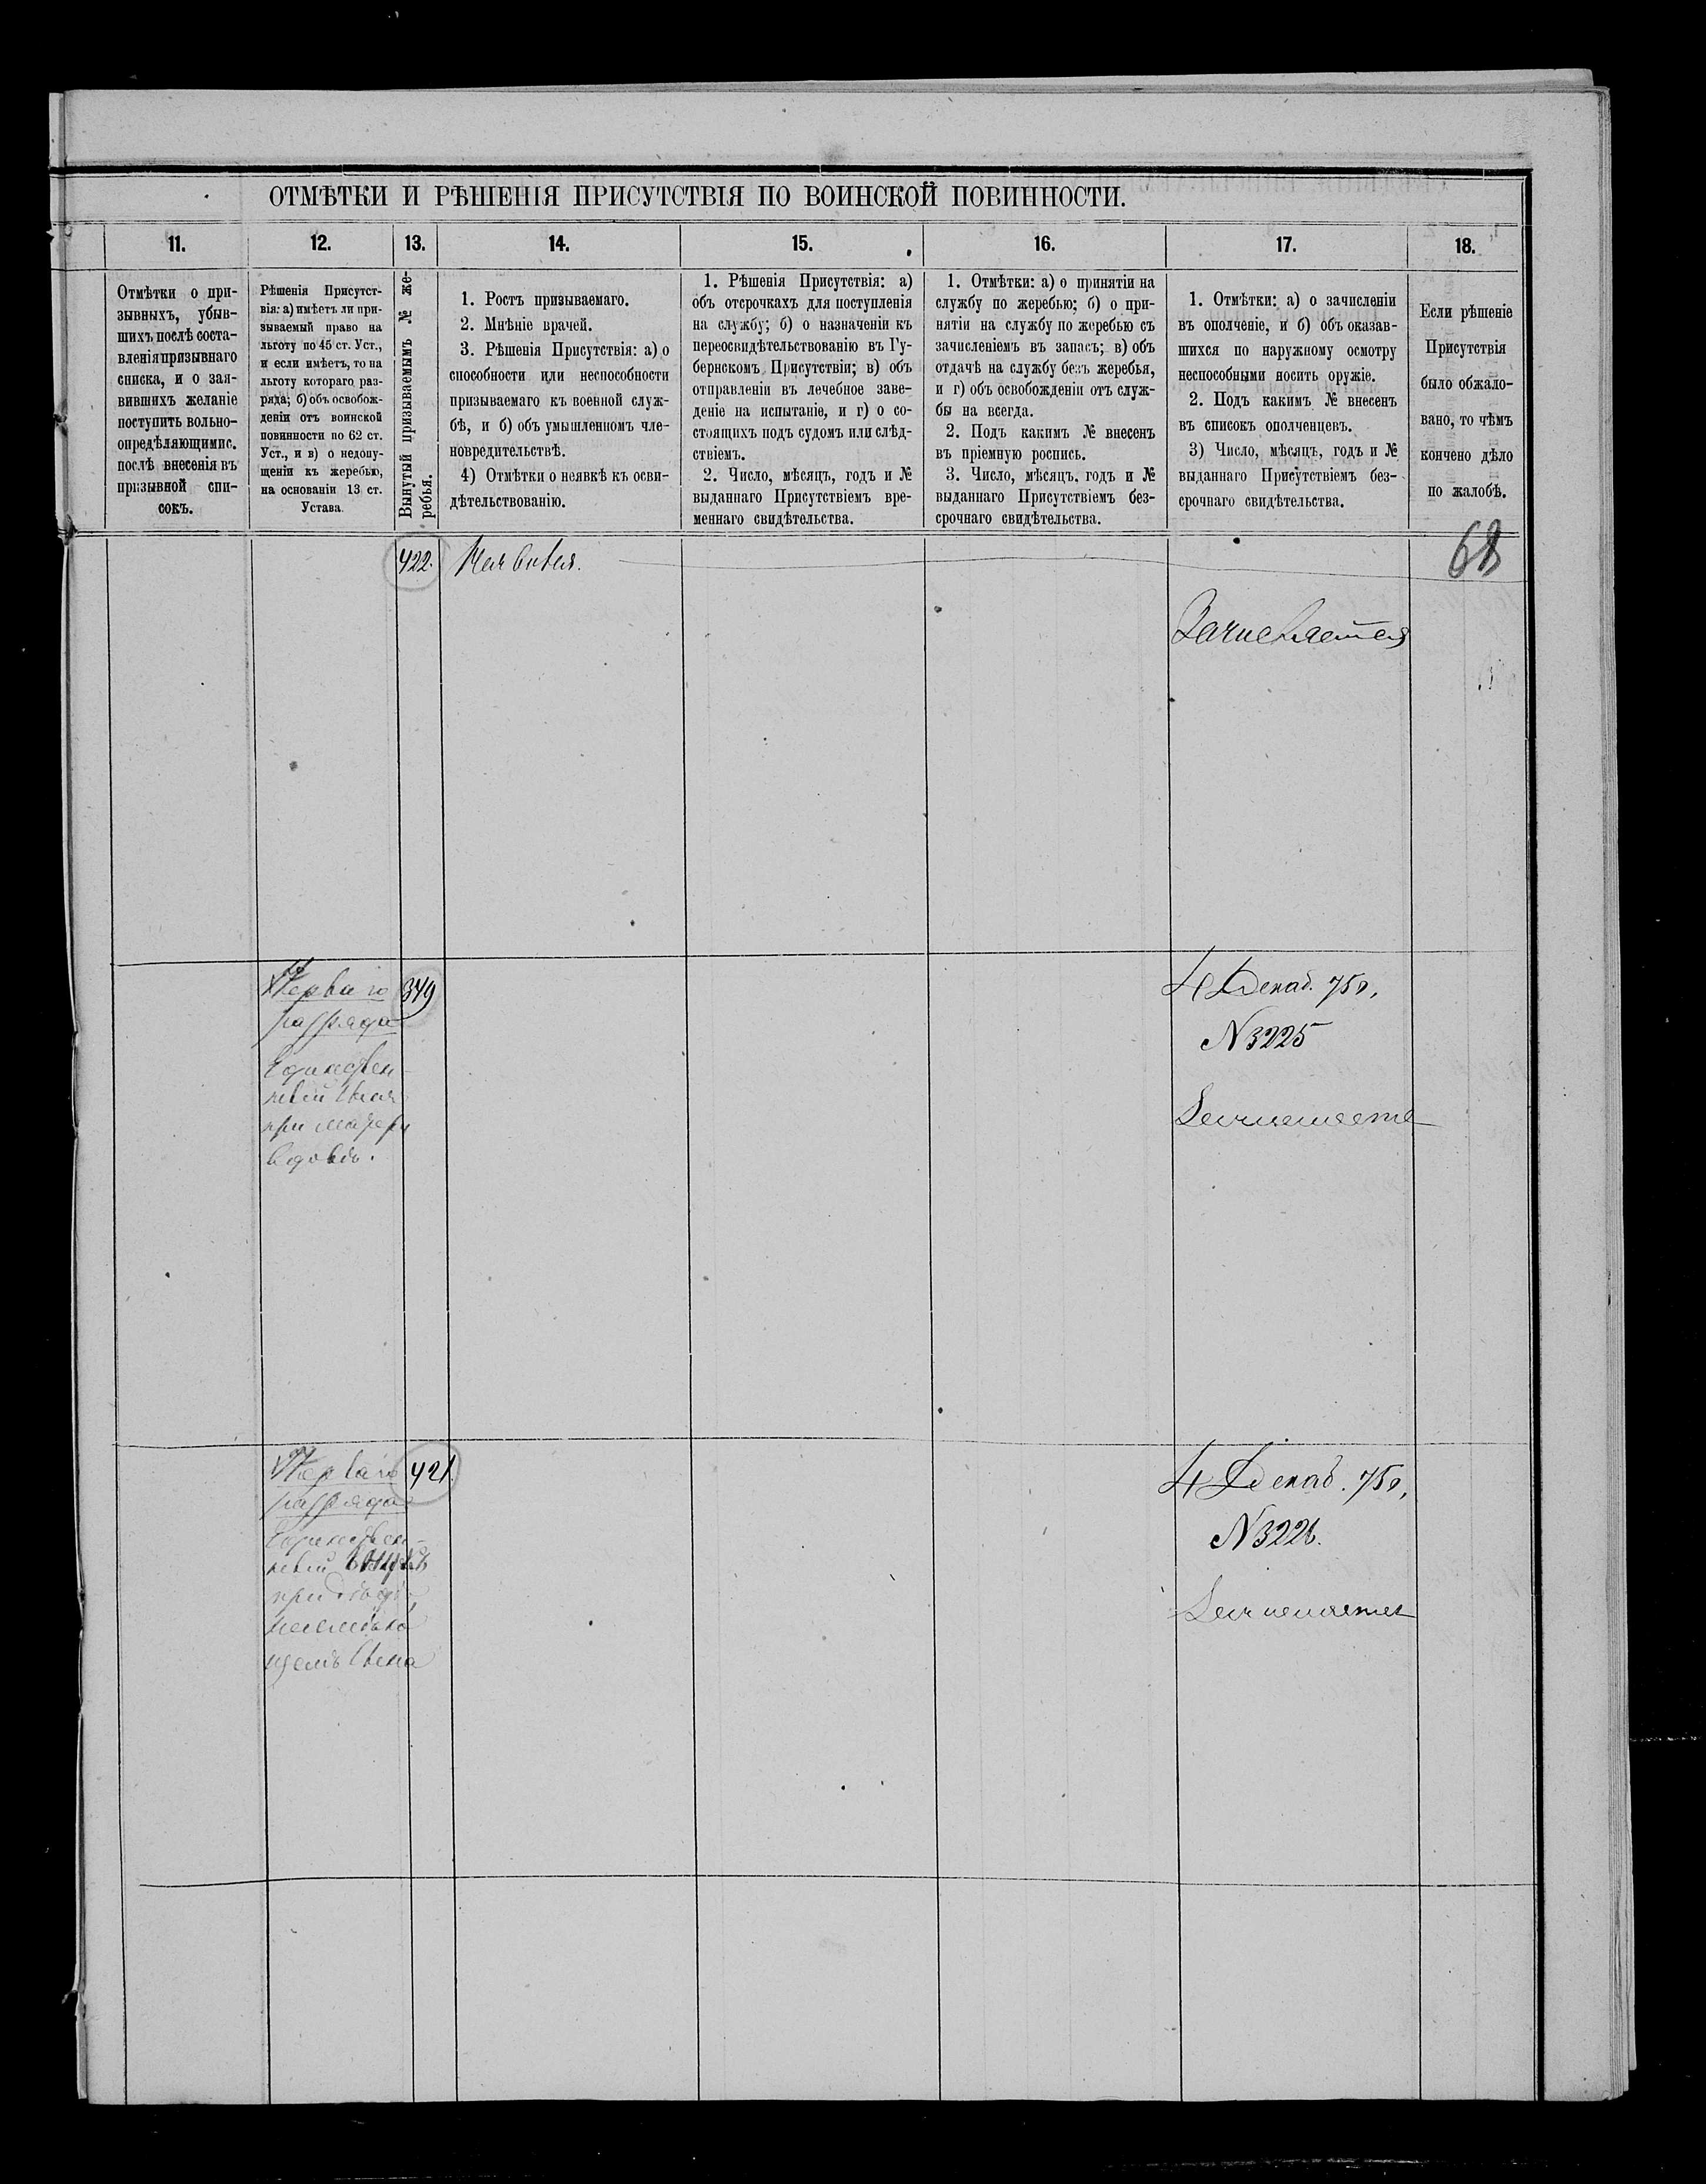 ОТМѢТКИ И РѢШЕНІЯ ПРИСУТСТВІЯ ПО ВОИНСКОЙ ПОВИННОСТИ.
11.
12.
13.
14.
15.
16.
17.
18.
Отмѣтки о при-
зывныхъ, убыв-
шихъ послѣ соста-
вленія призывнаго
списка, и о зая-
вившихъ желаніе
поступить вольно-
опредѣляющимис.
послѣ внесенія въ
призывной спи-
сокъ.
Рѣшенія Присутст-
вія: а) имѣетъ ли при-
зываемый право на
льготу по 45 ст. Уст.,
и если имѣетъ, то на
льготу котораго раз-
ряда; б) объ освобож-
деніи отъ воинской
повинности по 62 ст.
Уст., и в) о недопу-
щеніи къ жеребью,
на основаніи 13 ст.
Устава.
Вынутый призываемымъ № же-
ребья.
1. Ростъ призываемаго.
2. Мнѣніе врачей.
3. Рѣшенія Присутствія: а) о
способности или неспособности
призываемаго къ военной служ-
бѣ, и б) объ умышленномъ чле-
новредительствѣ.
4) Отмѣтки о неявкѣ къ осви-
дѣтельствованію.
1. Рѣшенія Присутствія: а)
объ отсрочкахъ для поступленія
на службу; б) о назначеніи къ
переосвидѣтельствованію въ Гу-
бернскомъ Присутствіи; в) объ
отправленіи въ лечебное заве-
деніе на испытаніе, и г) о со-
стоящихъ подъ судомъ или слѣд-
ствіемъ.
2. Число, мѣсяцъ, годъ и №
выданнаго Присутствіемъ вре-
меннаго свидѣтельства.
1. Отмѣтки: а) о принятіи на
службу по жеребью; б) о при-
нятіи на службу по жеребью съ
зачисленіемъ въ запасъ; в) объ
отдачѣ на службу безъ жеребья,
и г) объ освобожденіи отъ служ-
бы на всегда.
2. Подъ какимъ № внесенъ
въ пріемную роспись.
3. Число, мѣсяцъ, годъ и №
выданнаго Присутствіемъ без-
срочнаго свидѣтельства.
1. Отмѣтки: а) о зачисленіи
въ ополченіе, и б) объ оказав-
шихся по наружному осмотру
неспособными носить оружіе.
2. Подъ какимъ № внесенъ
въ списокъ ополченцевъ.
3) Число, мѣсяцъ, годъ и №
выданнаго Присутствіемъ без-
срочнаго свидѣтельства.
Если рѣшеніе
Присутствія
было обжало-
вано, то чѣмъ
кончено дѣло
по жалобѣ.
422.
Неявился.
68
Зачисляется
Перваго
разряда
Единствен-
ный сынъ
при матери
вдовѣ.
349
4 Декаб. 75 г.
N 3225
Зачисляется
Перваго
разряда
Единствен-
ный внукъ
при дѣдѣ,
неимѣю
щемъ сына
421.
4 Декаб. 75 г.
N 3226.
Зачисляется